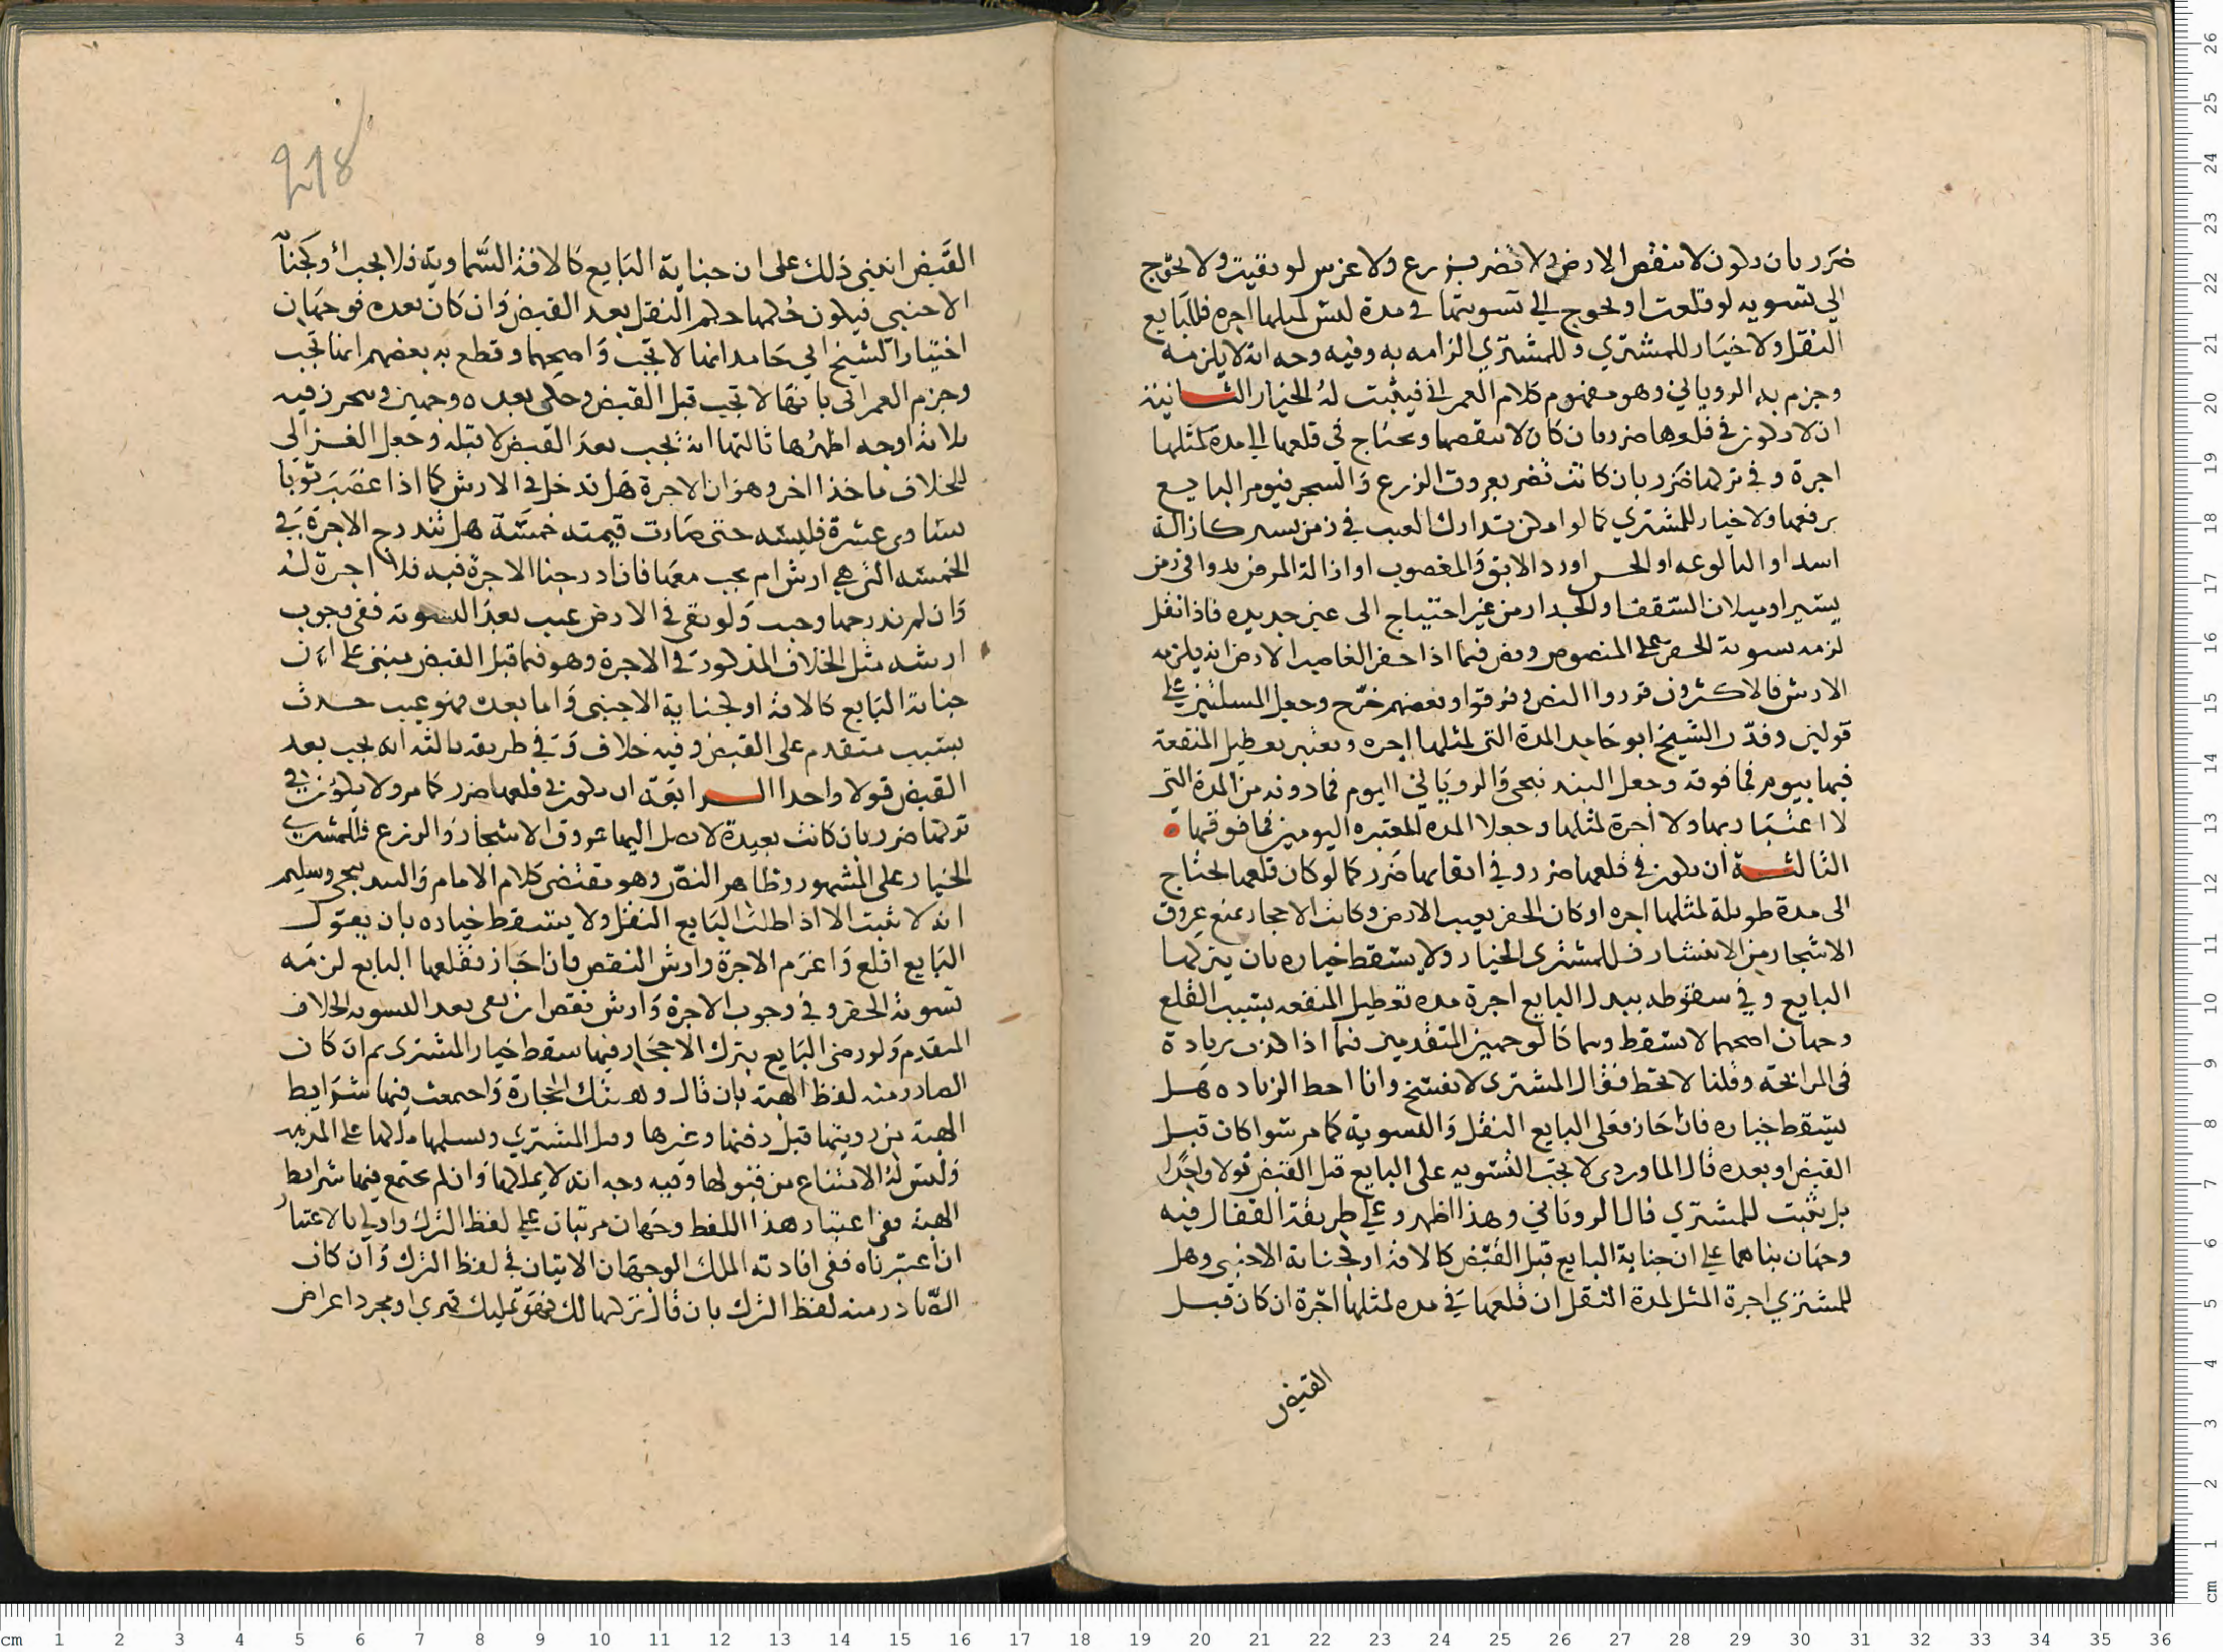 ضرر بان يكون لا تنقص الارض ولا تضر بزرع ولا غرس لو بقيت ولا تحوج
الى تسويه لو قلعت او تحوج الى تسويتها في مدة ليس لمثلها اجره فللبايع
النقل ولا خيار للمشتري وللمشتري الزامه به وفيه وجه انه لا يلزمه
وجزم به الروياني وهو مفهوم كلام العمراني فيثبت له الخيار الثانية
ان لا يكون في قلعها ضرر بان كان لا ينقصها ويحتاج في قلعها الى مدة لمثلها
اجرة وفي تركها ضرر بان كانت تضر بعروق الزرع والشجر فيومر البايع
برفعها ولا خيار للمشتري كما لو امكن تدارك العيب في زمن يسير كازالة
اسداد البالوعه او الحش او رد الابق والمغصوب او ازالة المرض بدوا في زمن
يسير او ميلان السقف او الجدار من غير احتياج الى عين جديده فاذا نقل
لزمه تسوية الحفر على المنصوص ونص فيما اذا حفر الغاصب الارض انه يلزمه
الارش فالاكثرون قرروا النص وفرقوا وبعضهم خرج وجعل المسلتين على
قولين وقدّر الشيخ ابو حامد المدة التي لمثلها اجره ويعتبر تعطيل المنفعة
فيها بيوم فما فوقه وجعل البندنيجي والروياني اليوم فما دونه من المدة التي
لا اعتبار بها ولا اجرة لمثلها وجعلا المده المعتبره اليومين فما فوقها
الثالثة ان يكون في قلعها ضرر وفي ابقايها ضرر كما لو كان قلعها يحتاج
الى مدة طويلة لمثلها اجره او كان الحفر يعيب الارض وكانت الاحجار تمنع عروق
الاشجار من الانتشار فللمشتري الخيار ولا يسقط خياره بان يتركها
البايع وفي سقوطه ببذل البايع اجرة مده تعطيل المنفعه بسبب القلع
وجهان اصحهما لا يسقط وهما كالوجهين المتقدمين فيما اذا كذب بزيادة
في المرابحة وقلنا لا تحط فقال المشتري لا تفسخ وانا احط الزياده هل
يسقط خياره فان اجاز فعلى البايع النقل والتسوية كما مر سوا كان قبل
القبض او بعده قال الماوردي لا تجب التسويه على البايع قبل القبض قولا واحدا
بل يثبت للمشتري قال الروياني وهذا اظهر وعلى طريقة القفال فيه
وجهان بناهما على ان جناية البايع قبل القبض كالافة او كجناية الاجنبي وهل
للمشتري اجرة المثل لمدة النقل ان قلعها في مده لمثلها اجرة ان كان قبل
القبض
218
القبض انبنى ذلك على ان جناية البايع كالافة السماوية فلا تجب او كجناية
الاجنبي فيكون حكمها حكم النقل بعد القبض وان كان بعده فوجهان
اختيار الشيخ ابي حامد انها لا تجب واصحهما وقطع به بعضهم انها تجب
وجزم العمراني بانها لا تجب قبل القبض وحكى بعده وجهين وتحرز فيه
ثلاثة اوجه اظهرها ثالثها انه تجب بعد القبض لا قبله وجعل الغزالي
للخلاف ماخذا اخر وهو ان الاجرة هل تدخل في الارش كما اذا غصب ثوبا
يساوي عشرة فلبسه حتى صارت قيمته خمسة هل تندرج الاجرة في
الخمسه التي هي ارش ام تجب معها فان ادرجنا الاجرة فيه فلا اجرة له
وان لم ندرجها وجبت ولو بقي في الارض عيب بعد التسوية ففي وجوب
ارشه مثل الخلاف المذكور في الاجرة وهو فيما قبل القبض مبني على ان
جناية البايع كالافة او كجناية الاجنبي واما بعده فهو عيب حدث
بسبب متقدم على القبض وفيه خلاف وفي طريقه ثالثه انه يجب بعد
القبض قولا واحدا الرابعة ان يكون في قلعها ضرر كما مر ولا يكون في
تركها ضرر بان كانت بعيدة لا يصل اليها عروق الاشجار والزرع فللمشتري
الخيار على المشهور وظاهر النص وهو مقتضى كلام الامام والبندنيجي وسليم
انه لا يثبت الا اذا طلب البايع النقل ولا يسقط خياره بان يقول
البايع اقلع واغرم الاجرة وارش النقص فان اجاز فقلعها البايع لزمه
تسوية الحفر وفي وجوب الاجرة وارش نقص ان بقي بعد التسويه الخلاف
المتقدم ولو رضي البايع بترك الاحجار فيها سقط خيار المشتري ثم ان كان
الصادر منه لفظ الهبة بان قال وهبتك الحجارة واجتمعت فيها شرايط
الهبة من رويتها قبل دفنها وغيرها وقبل المشتري وتسلمها ملكها على المذهب
وليس له الامتناع من قبولها وفيه وجه انه لا يملكها وان لم يجتمع فيها شرايط
الهبة ففي اعتبار هذا اللفظ وجهان مرتبان على لفظ الترك واولى بالاعتبار
ان اعتبرناه ففي افادته الملك الوجهان الاتيان في لفظ الترك وان كان
الصادر منه لفظ الترك بان قال تركها لك فهو تمليك قهري او مجرد اعراض